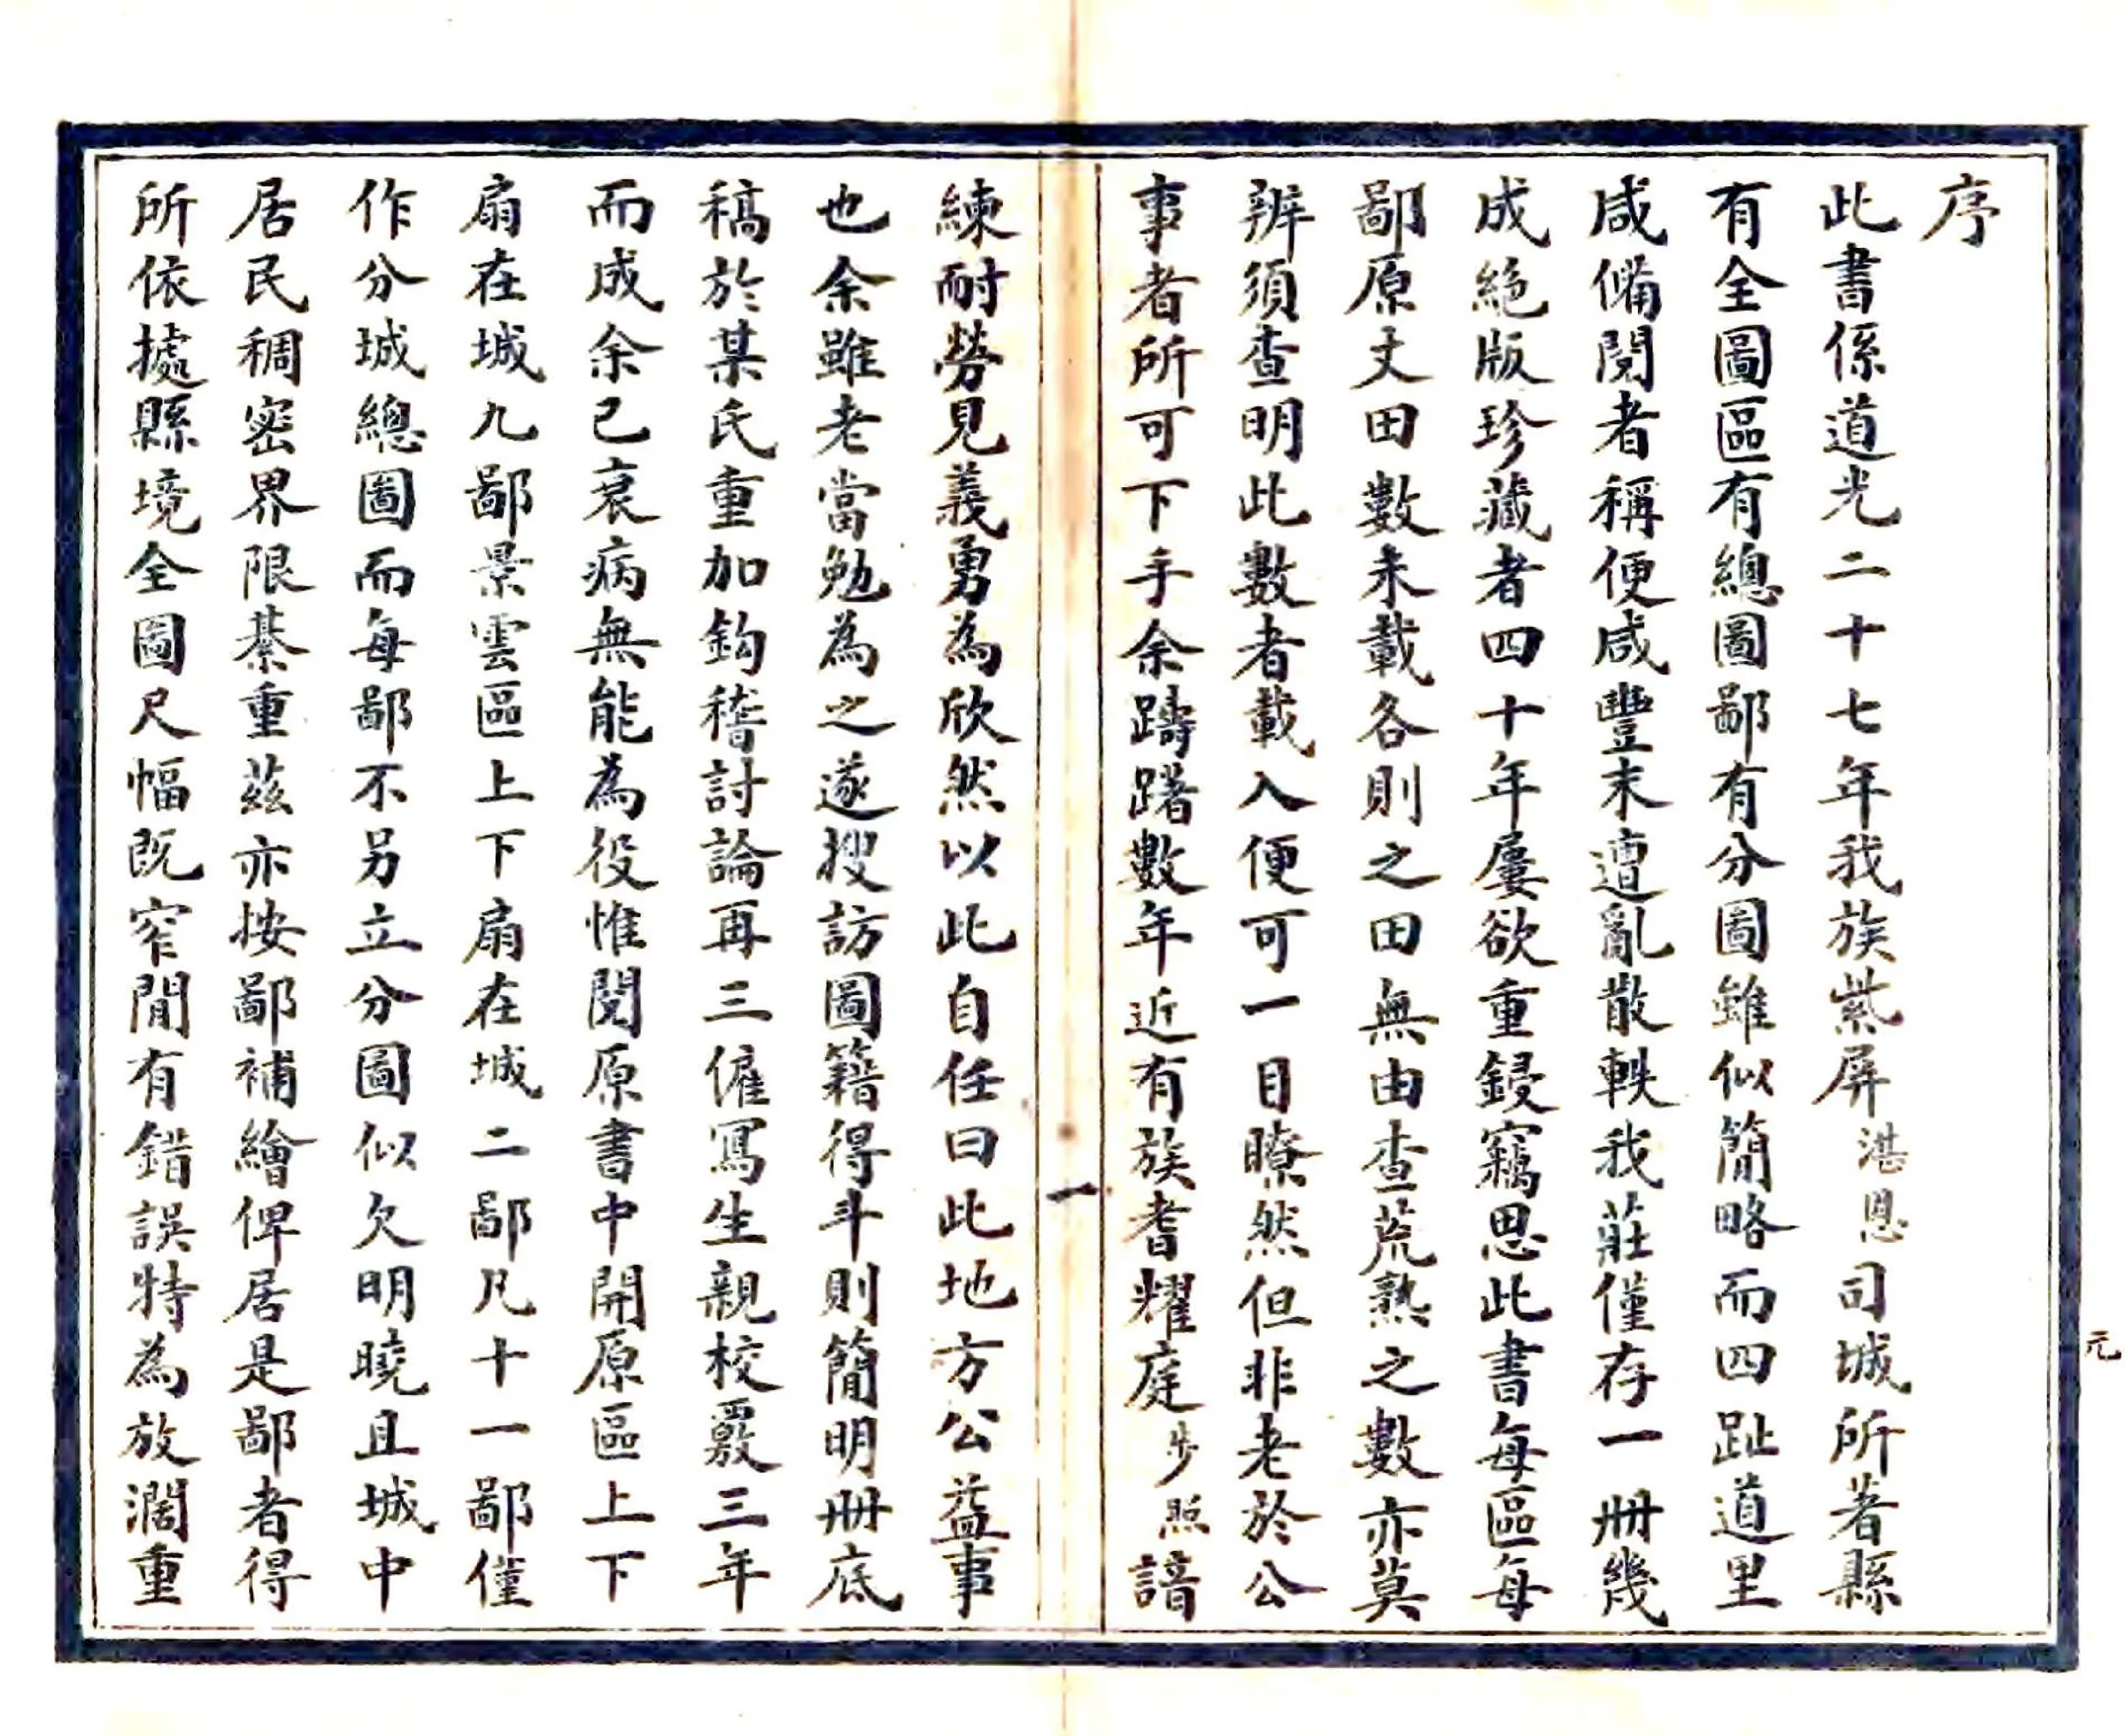 序
此書係道光二十七年我族紫屏湛恩司城所著縣
有全圖區有總圖鄙有分圖雖似簡略而四趾道里
咸備閱者稱便咸豐末遭亂散軼我莊僅存一冊幾
成絕版珍藏者四十年屢欲重鋟竊思此書每區每
鄙原丈田數未載各則之田無由查荒熟之數亦莫
辨須查明此數者載入便可一目瞭然但非老於公
事者所可下手余躊躇數年近有族耆耀庭步照諳
一
練耐勞見義勇為欣然以此自任曰此地方公益事
也余雖老當勉為之遂搜訪圖籍得斗則簡明冊底
稿於某氏重加鈎稽討論再三僱寫生親校覈三年
而成余已衰病無能為役惟閱原書中開原區上下
扇在城九鄙景雲區上下扇在城二鄙凡十一鄙僅
作分城總圖而每鄙不另立分圖似欠明曉且城中
居民稠密界限綦重茲亦按鄙補繪俾居是鄙者得
所依據縣境全圖尺幅既窄間有錯誤特為放濶重
元